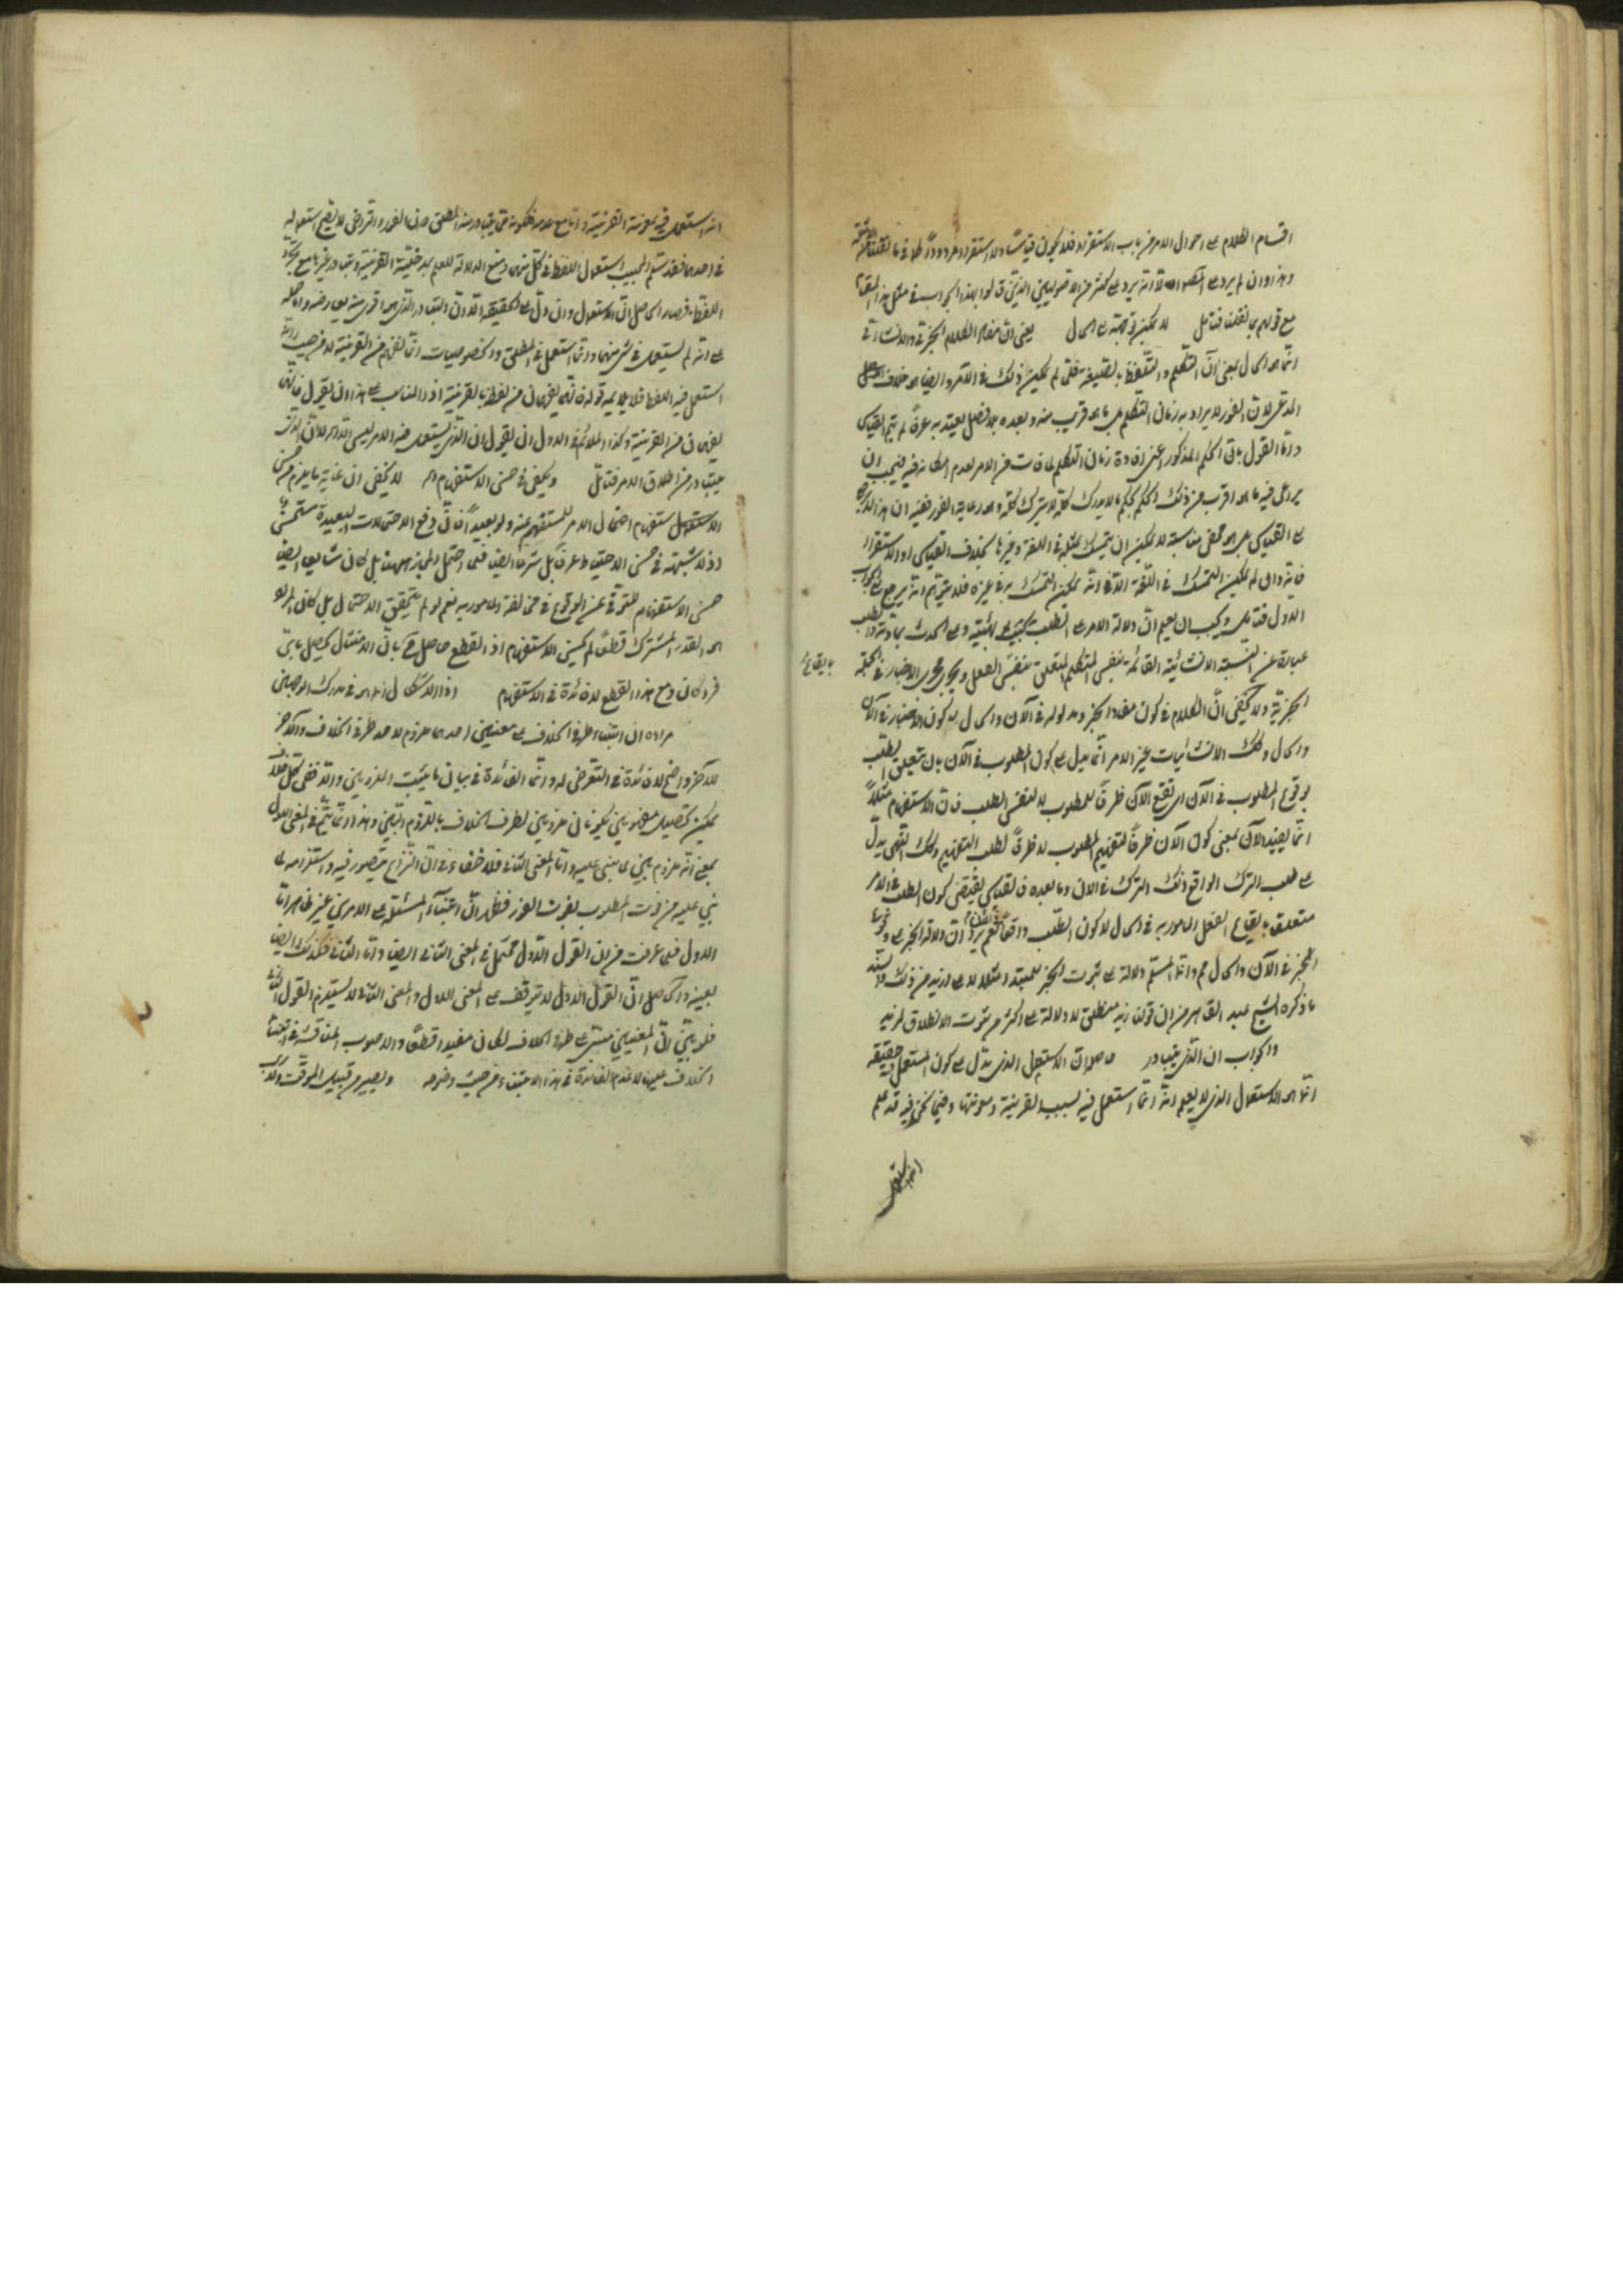 اقسام الكلام على احوال الامر من باب الاستقراء فلا يكون قياسًا ولا استقراء مردودًا
وهذا وان لم يرد على المص الا انه يرد على كثير من الاصوليين الذين قالوا بهذا الجواب في مثل هذا المقام
مع قولهم بما نقلنا فتأمل لا يمكن توجهه الى الحال يعنى ان مفاد الكلام الخبرى والانشاءى
انما هو الحال بمعنى آن التكلم والتلفظ بالصيغة فلما لم يمكن ذلك فى الامر وايضا هو خلاف
المدعى لان الفور لا يراد به زمان التكلم بل ما هو قريب منه وبعده بلا فصل يعتد به عرفًا لم يتم القياس
واما القول بان الحكم المذكور اعنى افادة زمان التكلم لما فات من الامر لعدم امكانه فيه فيجب ان
يراعى فيه ما هو اقرب من ذلك الحكم بحكم ما لا يدرك كله لا يترك كله وهو رعاية الفور ففيه ان هذا
على القياس بل هو محض مناسبة لا يمكن ان يتمسك بمثله فى اللغة وغيرها بخلاف القياس او الاستقراء
فانه وان لم يمكن التمسك فى اللغة الا انه يمكن التمسك به فى غيره فلا يتوهم انه يرجع الى الجواب
الاول فتأمل ويجب ان يعلم ان دلالة الامر على الطلب بهيئته وعلى الحدث بمادته والطلب
عبارة عن النسبة الانشائية القائمة بنفس المتكلم المتعلق بنفس الفعل ويجرى مجرى الاخبار فى الجملة
بايقاع
الخبرية ولا يخفى ان الكلام فى كون مفاد الخبر ومدلوله فى الآن والحال لا كون الاخبار فى الآن
والحال وكذلك الانشائيات غير الامر انما يدل على كون المطلوب فى الآن بان يتعلق الطلب
بوقوع المطلوب فى الآن اى يقع الآن ظرفًا للمطلوب لا لنفس الطلب فان الاستفهام مثلاً
انما يفيد الآن بمعنى كون الآن ظرفًا لتفهيم المطلوب لا ظرفًا لطلب التفهيم وكذلك النهى يدل
على طلب الترك الواقع ذلك الترك فى الان وما بعده فالقياس يقتضى كون الطلب فى الامر
متعلق بايقاع الفعل المامور به فى الحال لا كون الطلب واقعًا نعم يرد ان دلالة الخبر على وقوع
المخبر فى الآن والحال مم وانما المسلم دلالة على ثبوت الخبر للمبتدا مثلا لا على ازيد من ذلك والسند
ما ذكره الشيخ عبد القاهر من ان قولنا زيد منطلق لا دلالة على اكثر من ثبوت الانطلاق لزيد
والجواب ان الذى يتبادر حاصله ان الاستعمال الذى يدل على كون المستعمل فيه حقيقة
انما هو الاستعمال الذى لا يعلم انه انما استعمل فيه بسبب القرينة ومعونتها وفيما نحن فيه قد علم
انه استعمل
انه استعمل فيه بمعونة القرينة واما مع عدمه فلكونه مما يتبادر منه المطلق دون الفور والتراخى لا يقع استعماله
فى احدهما فقد سلم المجيب استعمال اللفظ فى كل منهما ومنع الدلالة للعلم بمدخلية القرينة وتبادر غيرهما مع تجرد
اللفظ فصار الحاصل ان الاستعمال وان دل على الحقيقة الا ان التبادر الذى هو اقوى منه يعارضه
على انه لم يستعمل فى شئ منهما وانما استعمل فى المطلق والخصوصيات انما تفهم من القرينة لا من حيث انه
استعمل فيه اللفظ فلا يلايمه قوله فانهما يفهمان من لفظ بالقرينة اذ المناسب على هذا ان يقول فانهما
يفهمان من القرينة وكذا الملائم الاول ان يقول بان الذى يستعمل فيه الامر ليس الا هو لان الذى
يتبادر من اطلاق الامر فتأمل ويكفى فى حسن الاستفهام اه لا يخفى ان غاية ما يلزم من حسن
الاستفهام احتمال الامر للمستفهم عنه ولو بعيدًا فان رفع الاحتمالات البعيدة مستحسن
اذ لا شبهة فى حسن الاحتياط عرفًا بل شرعًا ايضا فمتى احتمل المجاز حسن بل كان شايعا ايضا
حسن الاستفهام للتوقى عن الوقوع فى مخالفة المامور به نعم لو لم يتحقق الاحتمال بل كان المراد
هو القدر المشترك قطعًا لم يحسن الاستفهام اذ القطع حاصل ح بان الامتثال يحصل باى
فرد كان ومع هذا القطع لا فائدة فى الاستفهام اذ الاشكال انما هو فى مدرك الوجهين
مراده ان ابتناء طرفى الخلاف على معنيين احدهما ملزوم لاحد طرفى الخلاف والآخر
للآخر واضح لا فائدة فى التعرض له وانما الفائدة فى بيان ما يثبت الملزومين والا فى كل خلاف
يمكن تحصيل مفهومين يكونان ملزومين لطرفى الخلاف باللزوم البين وهذا انما يتم فى المعنى الاول
بمعنى انه ملزوم بين لما بنى عليه واما المعنى الثانى فلا خفاء فى ان النزاع يتصور فيه واستلزامه لما
بنى عليه من فوت المطلوب بفوت الفور فظهر ان ابتناء المسئلة على الامرين غير ظاهر اما
الاول فلما عرفت من ان القول الاول محتمل فى المعنى الثانى ايضا واما الثانى فكذلك ايضا
بعينه والحاصل ان القول الاول لا يتوقف على المعنى الاول والمعنى الثانى لا يستلزم القول الثانى
فلو بين ان المعنيين منشأ طرفى الخلاف لكان مفيدا قطعًا والاصوب المناقشة فى ابتناء
الخلاف عليهما لا عدم الفائدة فى هذا الابتناء من حيث وضوحه ويصير من قبيل الموقت